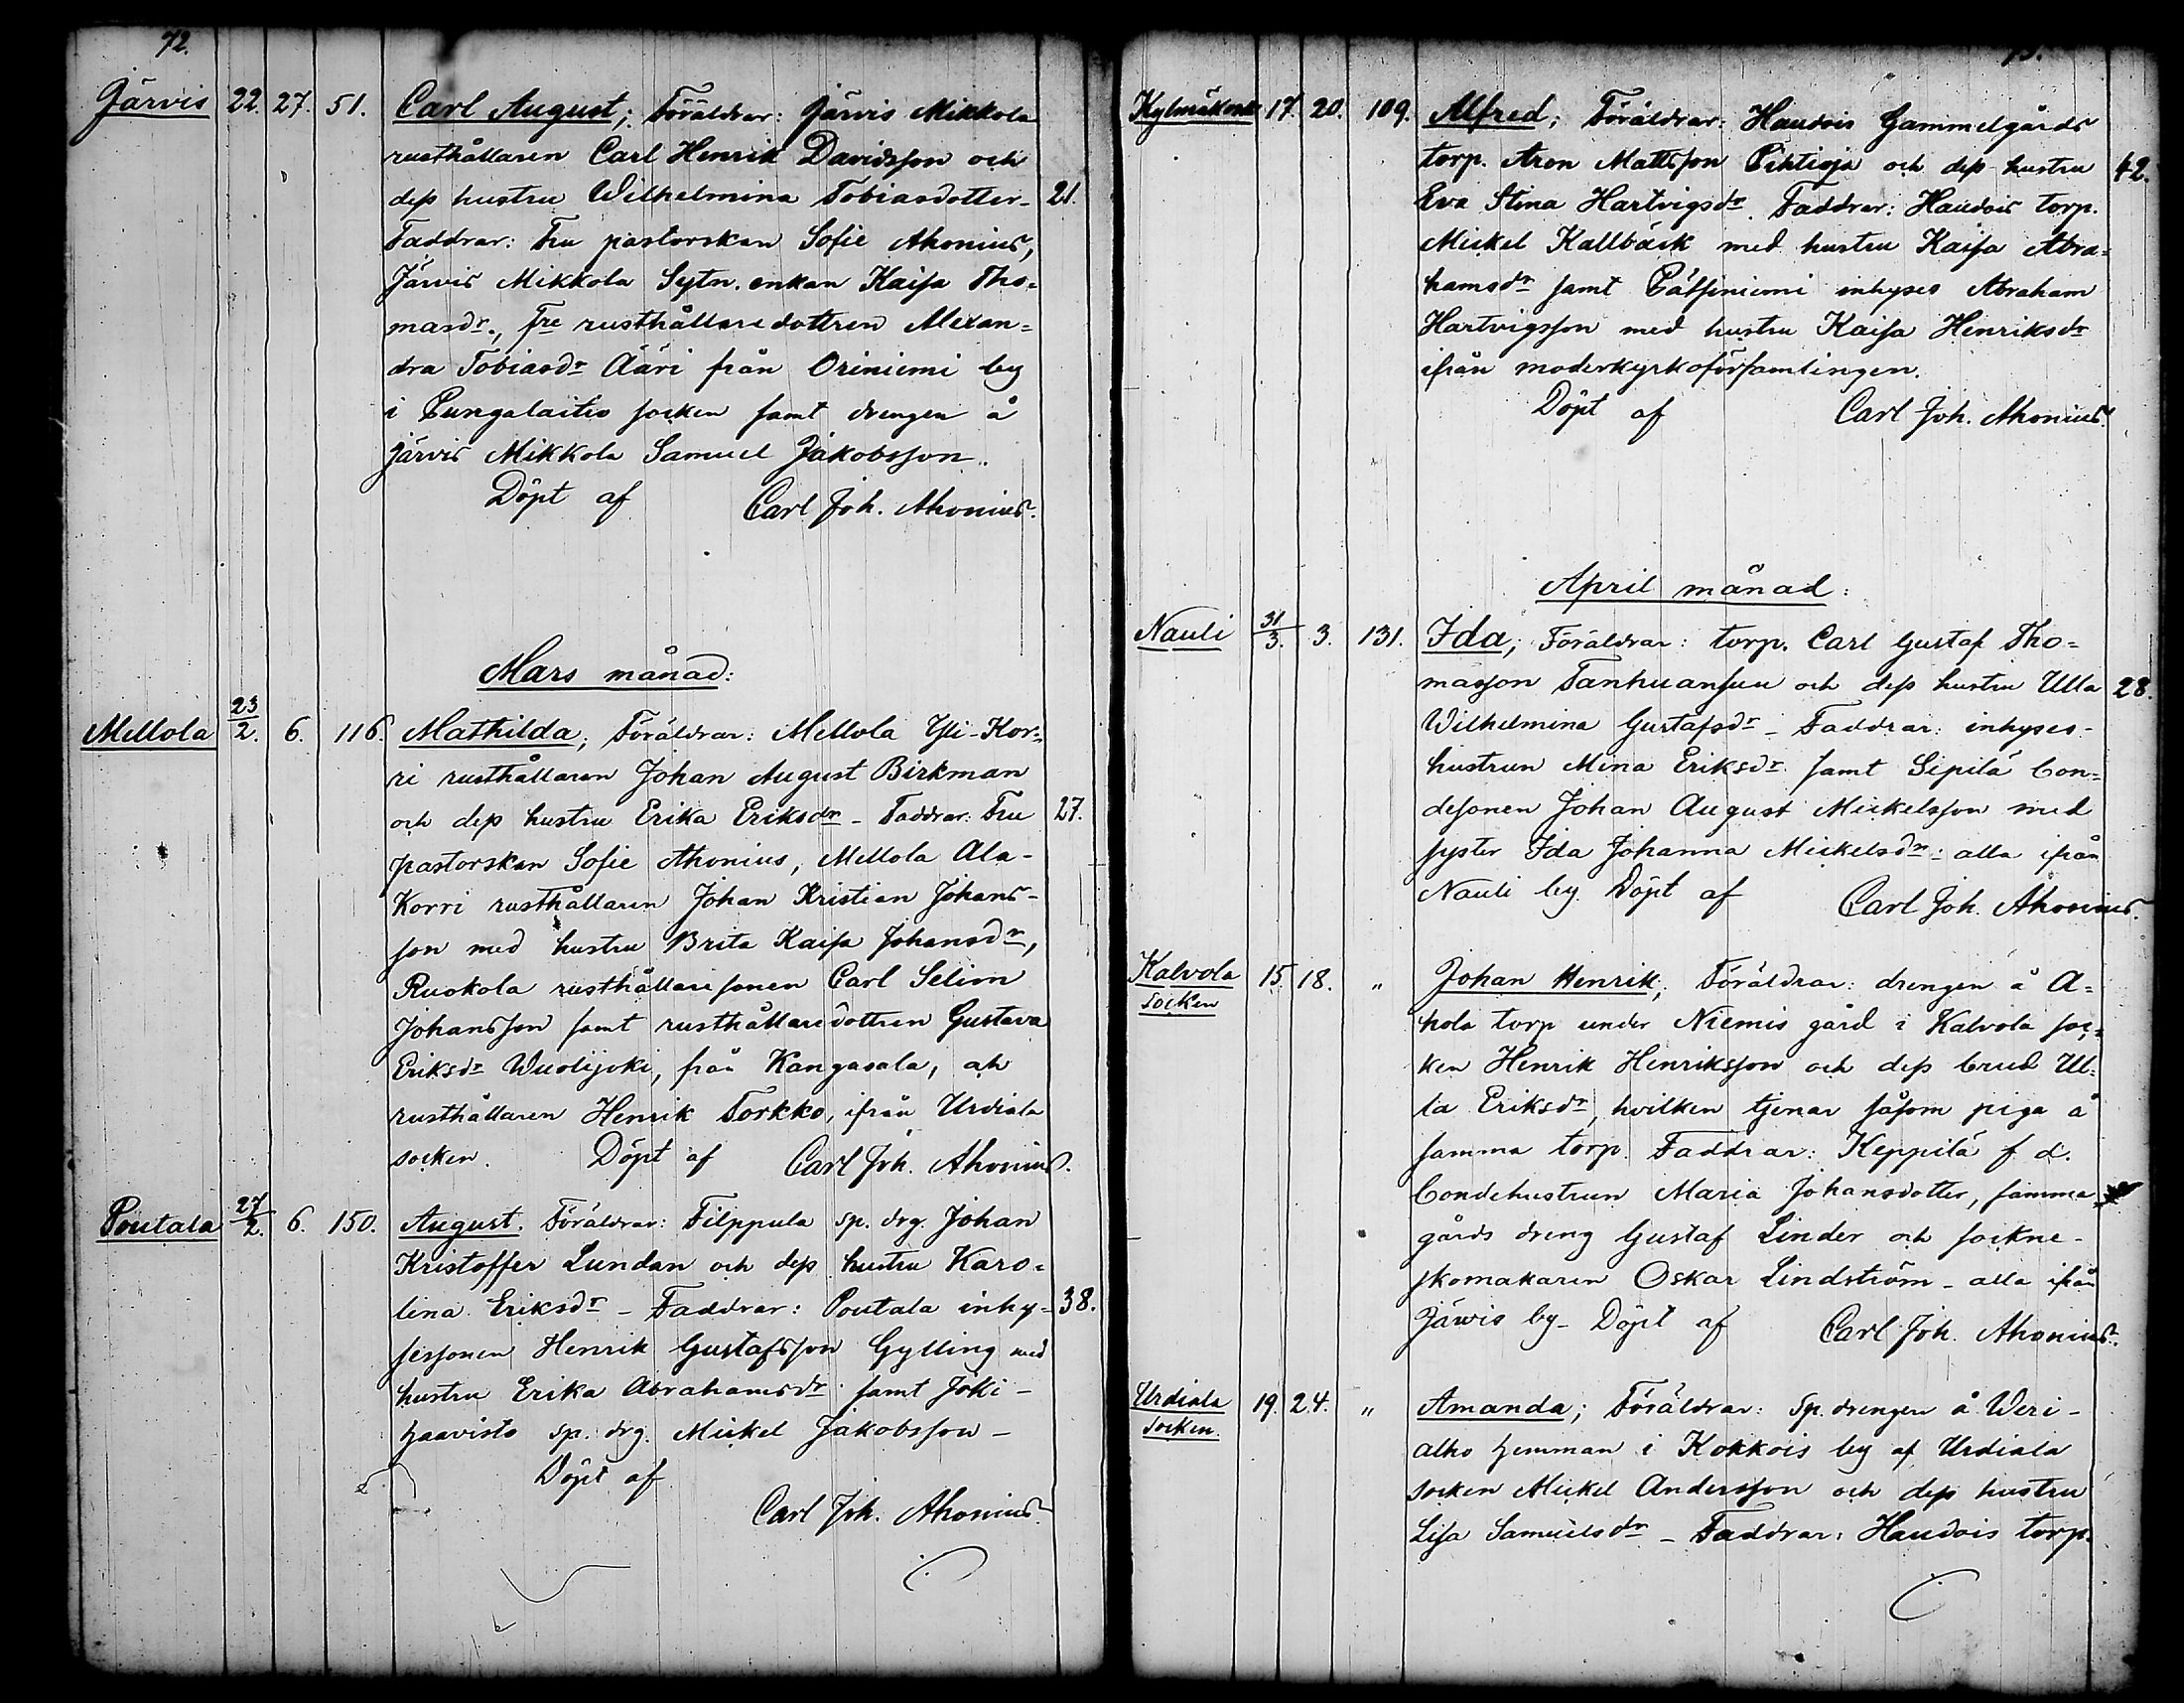 72.
Järvis 22. 27. 51. Carl August; Föräldrar: Järvis Mikkola
rusthållaren Carl Henrik Davidsson och
dess hustru Wilhelmina Tobiasdotter – 21.
Faddrar: Fru pastorskan Sofie Ahonius,
Järvis Mikkola Sytn. enkan Kaisa Tho=
masdr., fre rusthållaredottren Alexan=
dra Tobiasdr Ääri från Oriniemi by
i Pungalaitio socken samt drengen å
Järvis Mikkola Samuel Jakobsson.
Döpt af Carl Joh. Ahonius.
Mars månad:
Mellola 23/2. 6. 116. Mathilda; Föräldrar: Mellola Yli-Kor=
ri rusthållaren Johan August Birkman
och dess hustru Erika Eriksdr – Faddrar: Fru 27.
pastorskan Sofie Ahonius, Mellola Ala-
Korri rusthållaren Johan Kristian Johans-
son med hustru Brita Kaisa Johansdr,
Ruokola rusthållaresonen Carl Selim
Johansson samt rusthållaredottren Gustava
Eriksdr Wuolijoki, från Kangasala, och
rusthållaren Henrik Torkko, ifrån Urdiala
socken. Döpt af Carl Joh. Ahonius.
Poutala 27/2. 6. 150. August. Föräldrar: Filppula sp. drg. Johan
Kristoffer Lundan och dess hustru Karo=
lina Eriksdr – Faddrar: Poutala inhy- 38.
sessonen Henrik Gustafsson Gylling med
hustru Erika Abrahamsdr samt Joki-
haavisto sp. drg. Mickel Jakobsson –
Döpt af
Carl Joh. Ahonius.
Kylmäkoski 17. 20. 109. Alfred; Föräldrar: Haudois Gammelgårds
torp. Aron Mattsson Pihtioja och dess hustru 42.
Eva Stina Hartvigsdr. Faddrar: Haudois torp.
Mickel Kallbäck med hustru Kaisa Abra=
hamsdr samt Pätsiniemi inhyses Abraham
Hartvigsson med hustru Kaisa Henriksdr
ifrån moderkyrkoförsamlingen.
Döpt af Carl Joh. Ahonius.
April månad:
Nauli 31/3. 3. 131. Ida; Föräldrar: torp. Carl Gustaf Tho=
masson Tanhuansuu och dess hustru Ulla 28.
Wilhelmina Gustafsdr – Faddrar: inhyses-
hustrun Mina Eriksdr samt Sipilä bon=
desonen Johan August Mickelsson med
syster Ida Johanna Mickelsdr: alla ifrån
Nauli by. Döpt af Carl Joh. Ahonius.
Kalvola 15 18. „ Johan Henrik; Föräldrar: drengen å A=
socken
hola torp under Niemis gård i Kalvola soc=
ken Henrik Henriksson och dess brud Ul=
la Eriksdr, hvilken tjenar såsom piga å
samma torp. Faddrar: Keppilä f d.
bondehustrun Maria Johansdotter, samma
gårds dreng Gustaf Linder och sockne-
skomakaren Oskar Lindström – alla ifrån
Järvis by – Döpt af Carl Joh. Ahonius.
Urdiala 19. 24. „ Amanda; Föräldrar: Sp. drengen å Weri-
socken.
alho hemman i Kokkois by af Urdiala
socken Mickel Andersson och dess hustru
Lisa Samuelsdr – Faddrar: Haudois torp.